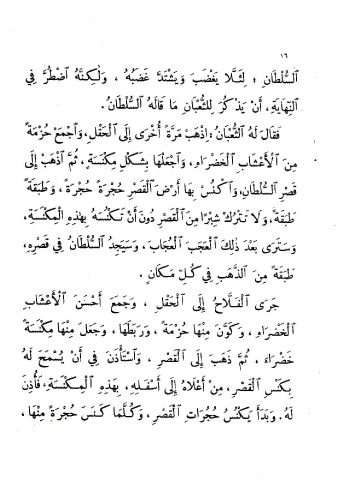 ١٦
السُّلْطَانِ ؛ لِئَلَّا يَغْضَبَ وَيَشْتَدَّ غَضَبُهُ ، وَلَكِنَّهُ اضْطُرَّ فِي
النِّهَايَةِ، أَنْ يَذْكُرَ لِلثُّعْبَانِ مَا قَالَهُ السُّلْطَانُ.
فَقَالَ لَهُ الثُّعْبَانُ: اِذْهَبْ مَرَّةً أُخْرَى إِلَى الْحَقْلِ، وَاجْمَعْ حُزْمَةً
مِنَ الْأَعْشَابِ الْخَضْرَاءِ، وَاجْعَلْهَا بِشَكْلِ مِكْنَسَةٍ، ثُمَّ اذْهَبْ إِلَى
قَصْرِ السُّلْطَانِ، وَاكْنُسْ بِهَا أَرْضَ الْقَصْرِ حُجْرَةً حُجْرَةً، وَطَبَقَةً
طَبَقَةً، وَلَا تَتْرُكْ شِبْرًا مِنَ الْقَصْرِ دُونَ أَنْ تَكْنُسَهُ بِهَذِهِ الْمِكْنَسَةِ،
وَسَتَرَى بَعْدَ ذَلِكَ الْعَجَبَ الْعُجَابَ، وَسَيَجِدُ السُّلْطَانُ فِي قَصْرِهِ،
طَبَقَةً مِنَ الذَّهَبِ فِي كُلِّ مَكَانٍ.
جَرَى الْفَلَّاحُ إِلَى الْحَقْلِ ، وَجَمَعَ أَحْسَنَ الْأَعْشَابِ
الْخَضْرَاءِ ، وَكَوَّنَ مِنْهَا حُزْمَةً ، وَرَبَطَهَا، وَجَعَلَ مِنْهَا مِكْنَسَةً
خَضْرَاءَ ، ثُمَّ ذَهَبَ إِلَى الْقَصْرِ ، وَاسْتَأْذَنَ فِي أَنْ يُسْمَحَ لَهُ
بِكَنْسِ الْقَصْرِ، مِنْ أَعْلَاهُ إِلَى أَسْفَلِهِ، بِهَذِهِ الْمِكْنَسَةِ، فَأُذِنَ
لَهُ. وَبَدَأَ يَكْنُسُ حُجُرَاتِ الْقَصْرِ، وَكُلَّمَا كَنَسَ حُجْرَةً مِنْهَا ،